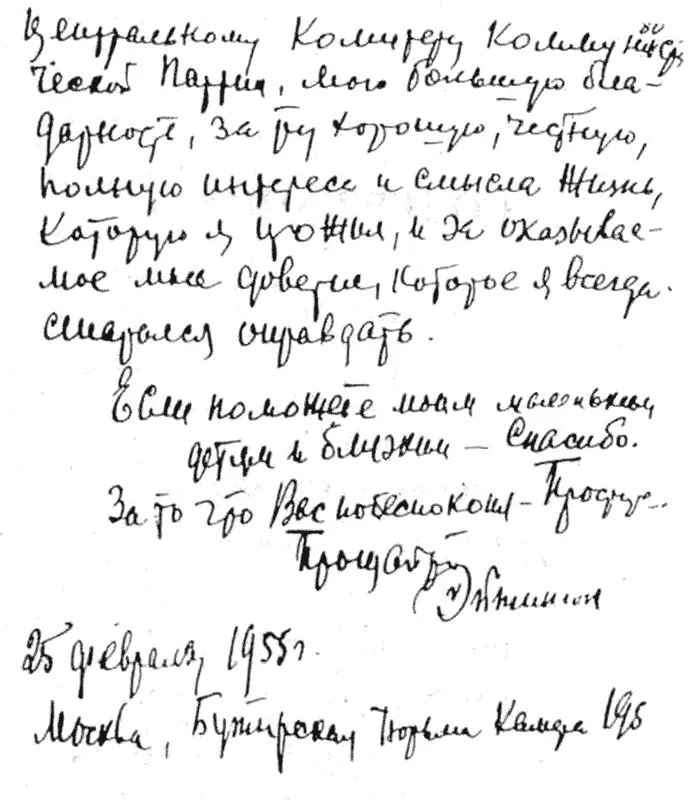 Центральному Комитету Коммунисти-
ческой Партии, мою большую бла-
дарность, за ту хорошую, честную,
полную интереса и смысла жизнь,
которую я прожил, и за оказывае-
мое мне доверие, которое я всегда
старался оправдать.
Если поможете моим маленьким
детям и близким – Спасибо.
За то что Вас побеспокоил – Простите..
Прощайте
Эйтингон
25 февраля 1955 г.
Москва, Бутырская тюрьма Камера 195